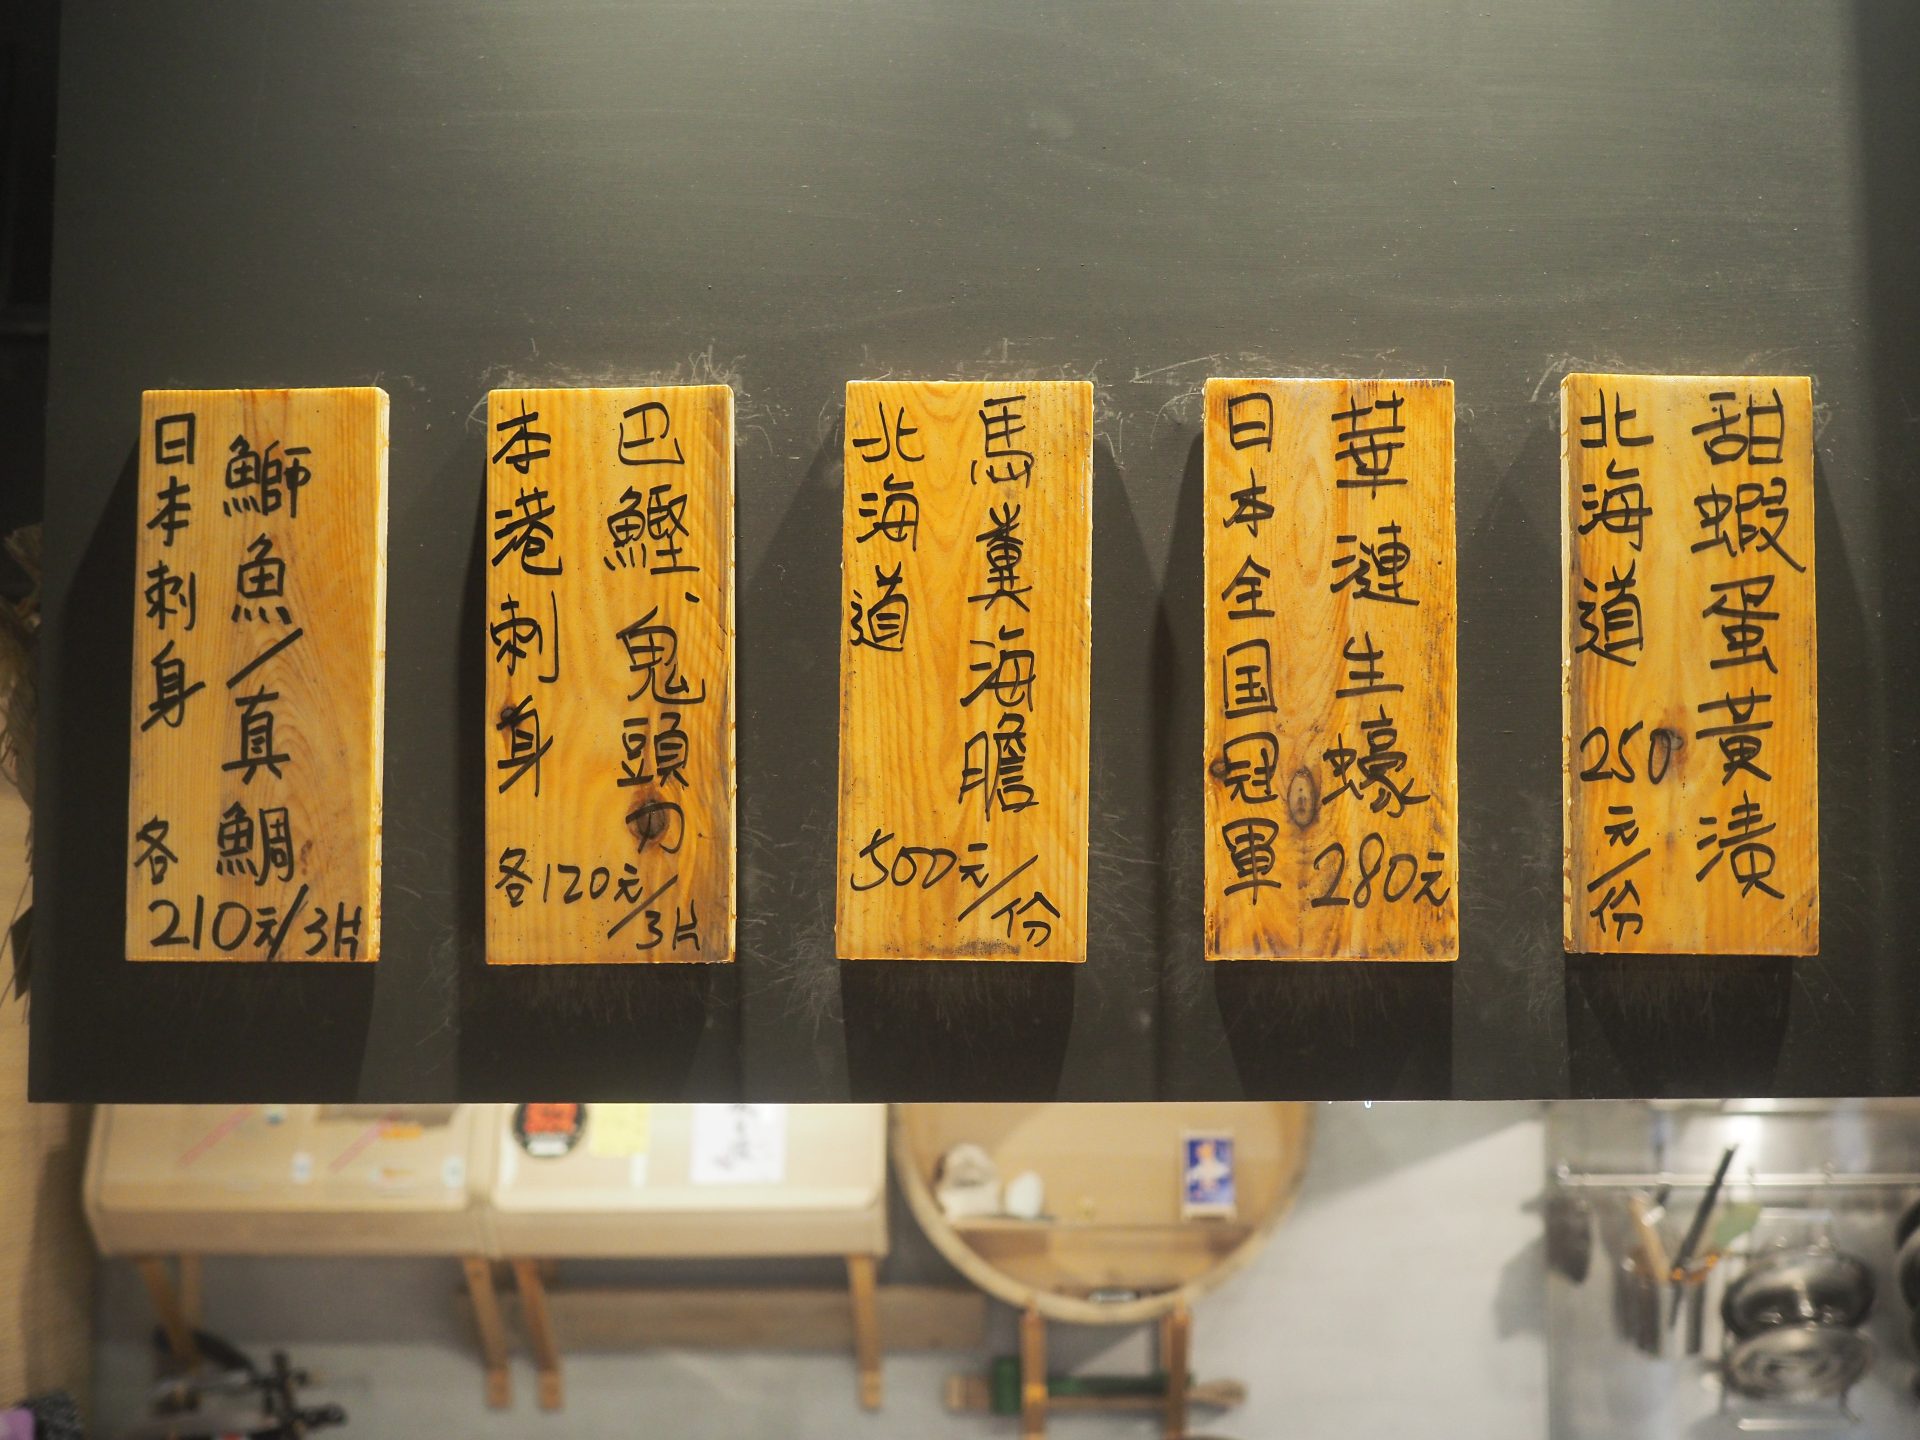 北海道
甜蝦蛋黃漬
250元/份
日本全国冠軍
華漣生蠔
280元
北海道
馬糞海膽
500元/份
本港刺身
巴鰹、鬼頭刀
各120元/3片
日本刺身
鰤魚/真鯛
各210元/3片